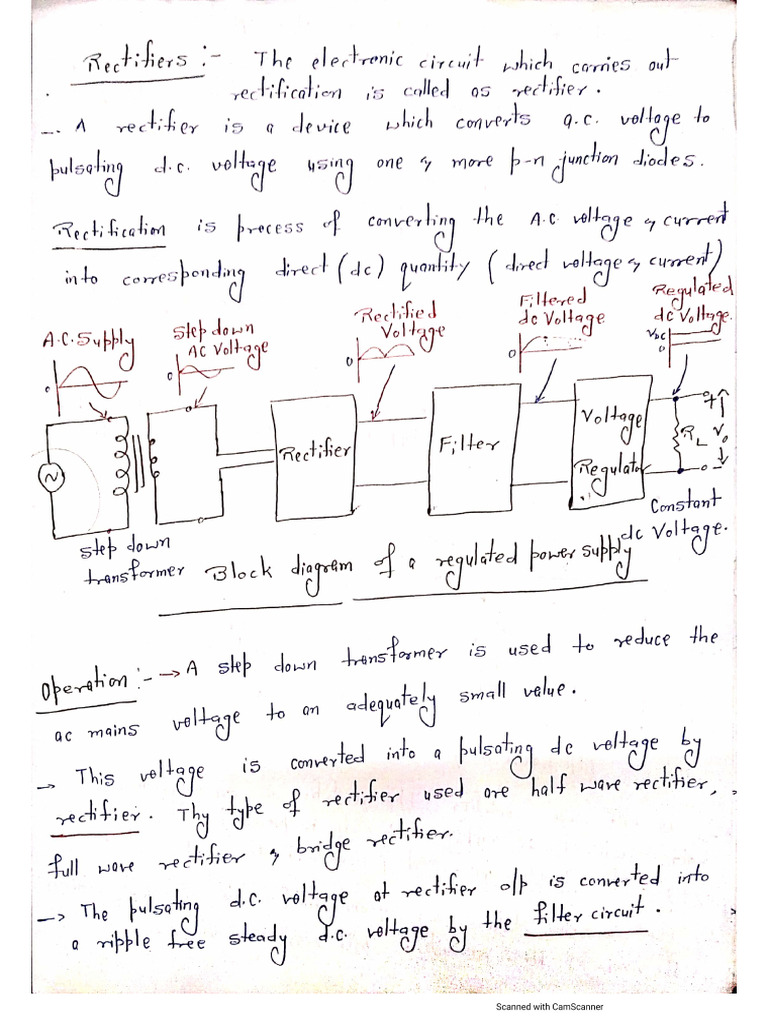 Rectifiers :- The electronic circuit which carries out
rectification is called as rectifier.
- A rectifier is a device which converts a.c. voltage to
pulsating d.c. voltage using one or more p-n junction diodes.
Rectification is process of converting the A.C voltage or current
into corresponding direct (dc) quantity (direct voltage or current)
A.C. Supply
Step down
AC Voltage
Rectified
Voltage
Filtered
dc Voltage
Regulated
dc Voltage.
VDC
0
0
0
0
0
Rectifier
Filter
Voltage
Regulator
RL
+
Vo
-
Step down
transformer
Constant
dc Voltage.
Block diagram of a regulated power supply
Operation :- → A step down transformer is used to reduce the
ac mains voltage to an adequately small value.
→ This voltage is converted into a pulsating dc voltage by
rectifier. Thy type of rectifier used are half wave rectifier,
full wave rectifier or bridge rectifier.
→ The pulsating d.c. voltage at rectifier o/p is converted into
a ripple free steady d.c. voltage by the filter circuit.
Scanned with CamScanner